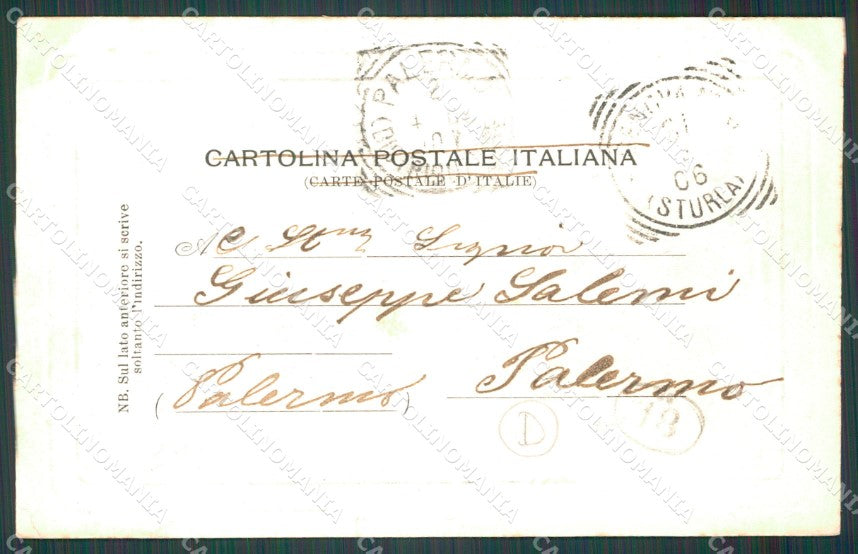 CARTOLINA POSTALE ITALIANA
(CARTE POSTALE D'ITALIE)
NB. Sul lato anteriore si scrive
soltanto l'indirizzo.
PALERMO
06
(STURLA)
Signor
Giuseppe Salemi
Palermo
(Palermo)
D
18
CARTOLINOMANIA